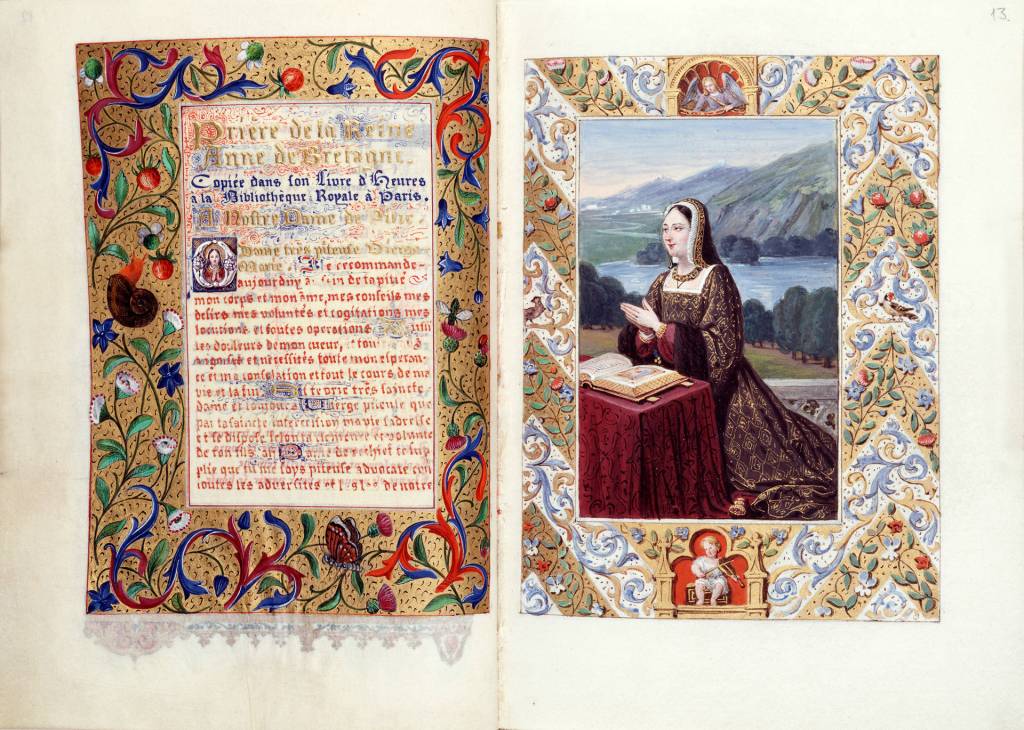 13.
Prière de la Reine
Anne de Bretagne.
Copiée dans son Livre d'Heures
à la Bibliothèque Royale à Paris.
A Nostre Dame de Pitié.
O Dame très piteuse Vierge
Marie. Je recommande
aujourduy à
mon corps et mon âme, mes conseils mes
desirs mes voluntés et cogitations mes
locutions et toutes operations
les douleurs de mon cueur,
angoisses et nécessités toute mon esperan-
ce et ma consolation et tout le cours de ma
vie et la fin. très saincte
dame et toujours Vierge piteuse que
par ta saincte intercession ma vie sadresse
et se dispose selon la clemence et volunte
de ton fils. Dame derechief te sup
plie que tu me soys piteuse advocate en
toutes les adversités et de notre